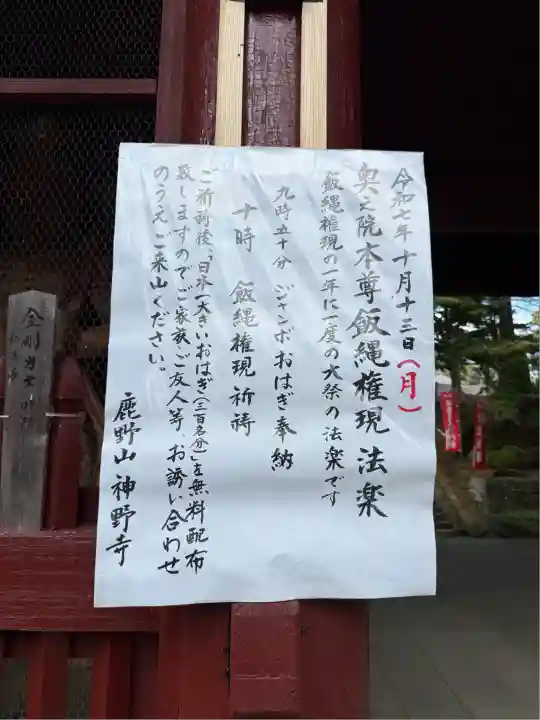 令和七年十月十三日（月）
奥之院本尊飯縄権現法楽
飯縄権現の一年に一度の大祭の法楽です
九時五十分 ジャンボおはぎ奉納
十時 飯縄権現祈祷
ご祈祷後、「日本一大きいおはぎ（三百名分）」を無料配布
致しますのでご家族、ご友人等、お誘い合わせ
のうえご来山ください。
鹿野山神野寺
金剛